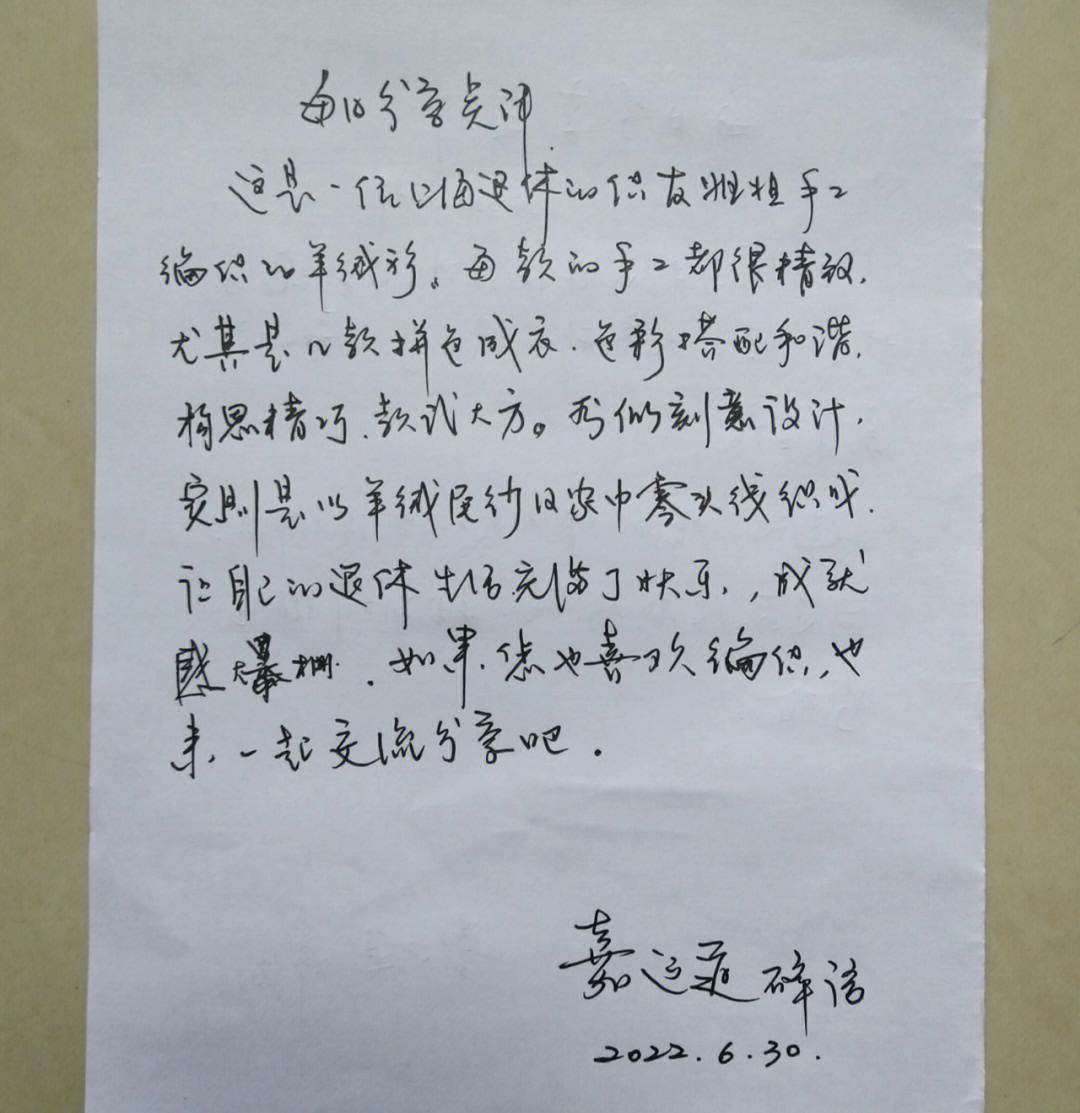 每日分享点评
这是一位上海退休的织友姐姐手工
编织的羊绒衫。每款的手工都很精致,
尤其是几款拼色成衣.色彩搭配和谐,
构思精巧、款式大方。看似刻意设计,
实则是以羊绒尾纱及家中零头线织成.
让自己的退休生活充满了快乐,,成就
感爆棚.如果您也喜欢编织,也
来一起交流分享吧.
嘉运莲碎语
2022.6.30.